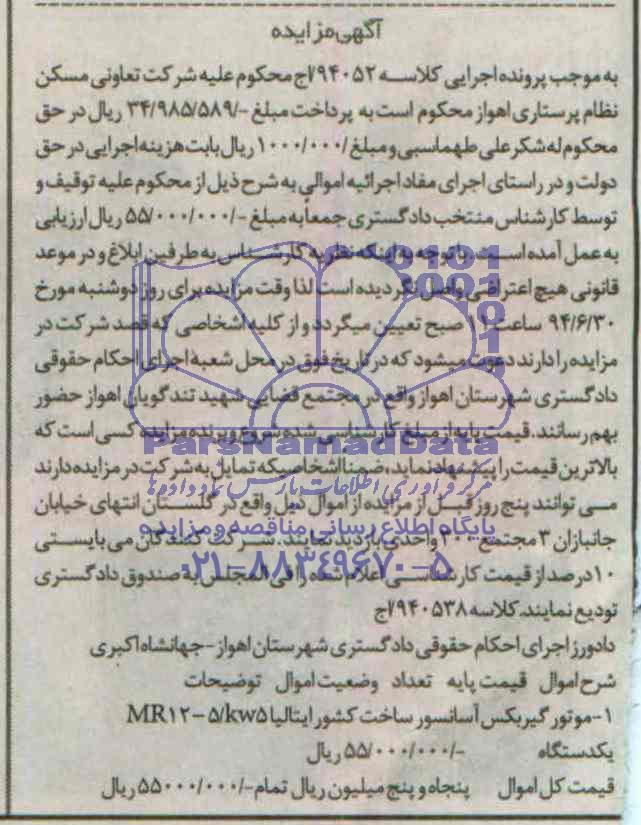 آگهی مزایده
به موجب پرونده اجرایی کلاسه ۹۴۰۵۲/اج محکوم علیه شرکت تعاونی مسکن
نظام پرستاری اهواز محکوم است به پرداخت مبلغ -/۳۴/۹۸۵/۵۸۹ ریال در حق
محکوم له شکرعلی طهماسبی و مبلغ /۱۰۰۰/۰۰۰ ریال بابت هزینه اجرایی در حق
دولت و در راستای اجرای مفاد اجرائیه اموالی به شرح ذیل از محکوم علیه توقیف و
توسط کارشناس منتخب دادگستری جمعاً به مبلغ -/۵۵/۰۰۰/۰۰۰ ریال ارزیابی
به عمل آمده است. باتوجه به اینکه نظریه کارشناس به طرفین ابلاغ و در موعد
قانونی هیچ اعتراضی واصل نگردیده است لذا وقت مزایده برای روز دوشنبه مورخ
۹۴/۶/۳۰ ساعت ۱۱ صبح تعیین میگردد و از کلیه اشخاصی که قصد شرکت در
مزایده را دارند دعوت میشود که در تاریخ فوق در محل شعبه اجرای احکام حقوقی
دادگستری شهرستان اهواز واقع در مجتمع قضایی شهید تندگویان اهواز حضور
بهم رسانند. قیمت پایه از مبلغ کارشناسی شده شروع و برنده مزایده کسی است که
ParsNamadData
بالاترین قیمت را پیشنهاد نماید، ضمنا اشخاصیکه تمایل به شرکت در مزایده دارند
مرکز فرآوری اطلاعات پارس نماد داده ها
می توانند پنج روز قبل از مزایده از اموال ذیل واقع در گلستان انتهای خیابان
پایگاه اطلاع رسانی مناقصه و مزایده
جانبازان ۳ مجتمع ۳۰۰ واحدی بازدید نمایند. شرکت کنندگان می بایستی
۰۲۱-۸۸۳۴۹۶۷۰-۵
۱۰ درصد از قیمت کارشناسی اعلام شده را فی المجلس به صندوق دادگستری
تودیع نمایند. کلاسه ۹۴۰۵۳۸/اج
دادورز اجرای احکام حقوقی دادگستری شهرستان اهواز-جهانشاه اکبری
شرح اموال قیمت پایه تعداد وضعیت اموال توضیحات
۱-موتور گیربکس آسانسور ساخت کشور ایتالیا MR۱۲-۵/kw۵
یکدستگاه -/۵۵/۰۰۰/۰۰۰ ریال
قیمت کل اموال پنجاه و پنج میلیون ریال تمام -/۵۵۰۰۰/۰۰۰ ریال